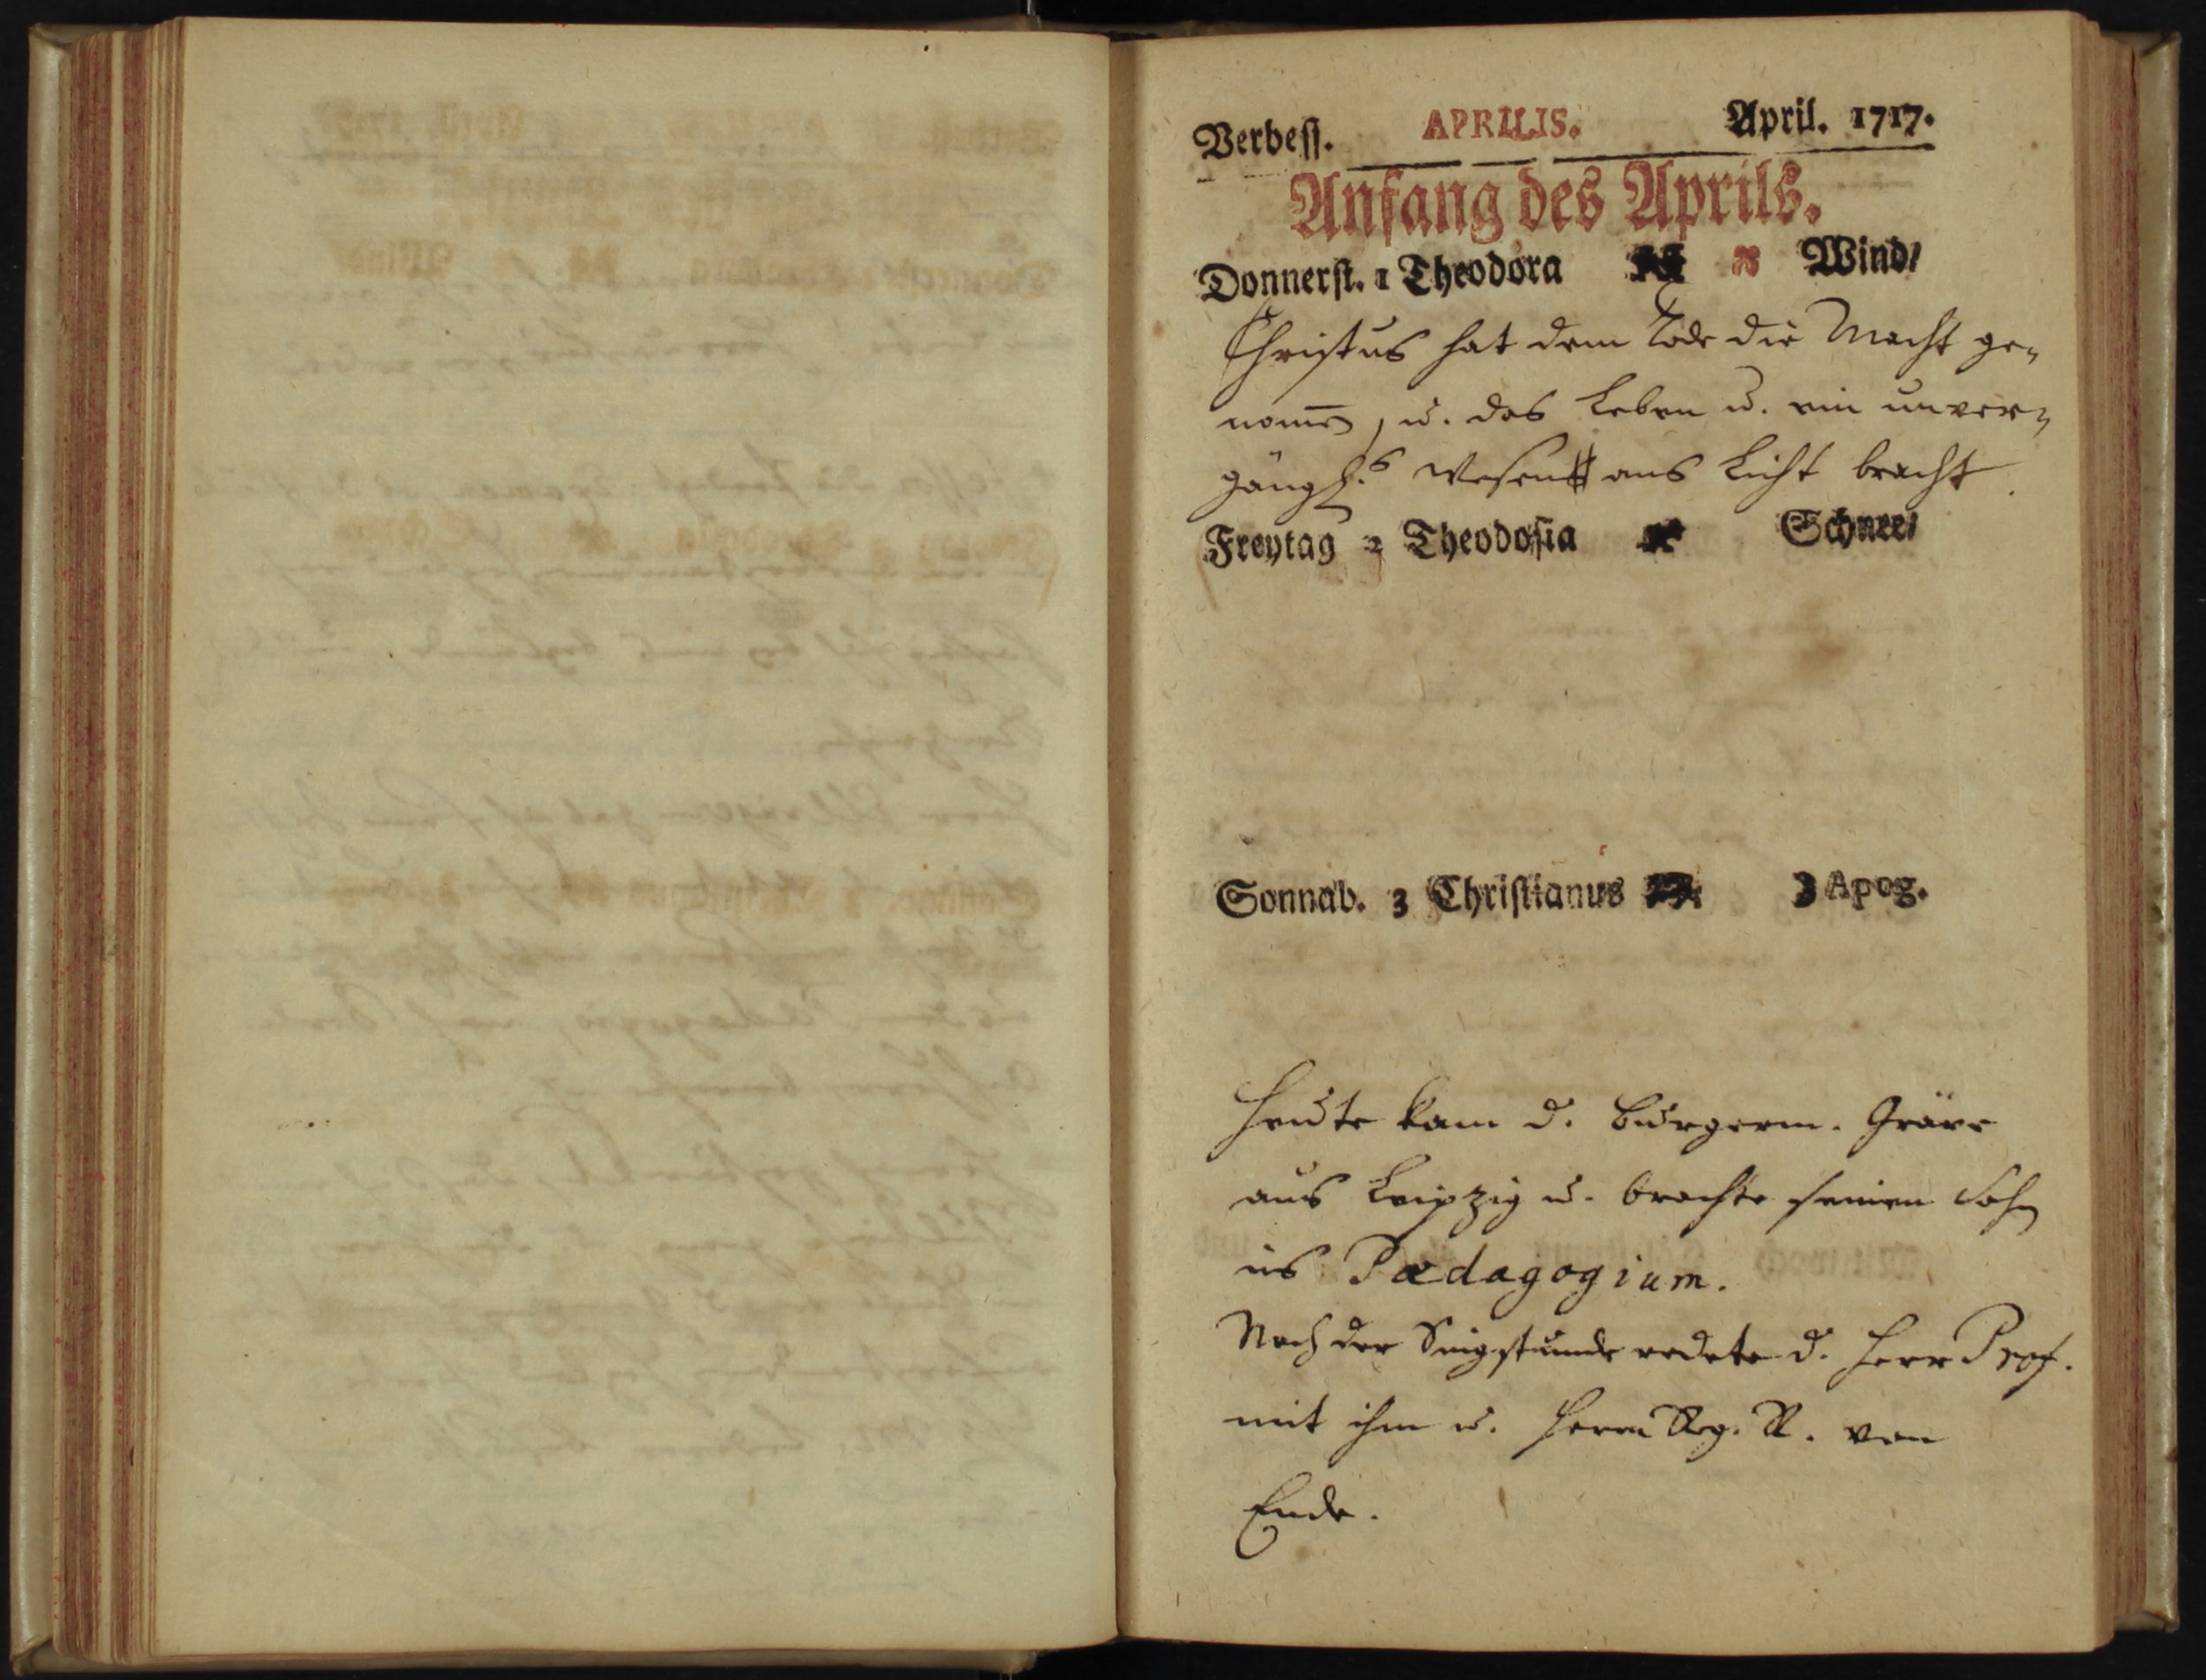 Verbess. APRILIS. April. 1717.
Anfang des Aprils.
Donnerst. 1 Theodora Wind/
Christus hat dem Tode die Macht ge-
nom̄en, u. das Leben u. ein unver-
gängl.s Wesen ans Licht bracht.
Freytag 2 Theodosia Schnee/
Sonnab. 3 Christianus ☽ Apog.
Heute kam d. Burgerm. Gräve
aus Leipzig u. brachte seinen Sohn
ins Pædagogium.
Nach der Singstunde redete d. Herr Prof.
mit ihm u. Herrn Reg. R. von
Ende.